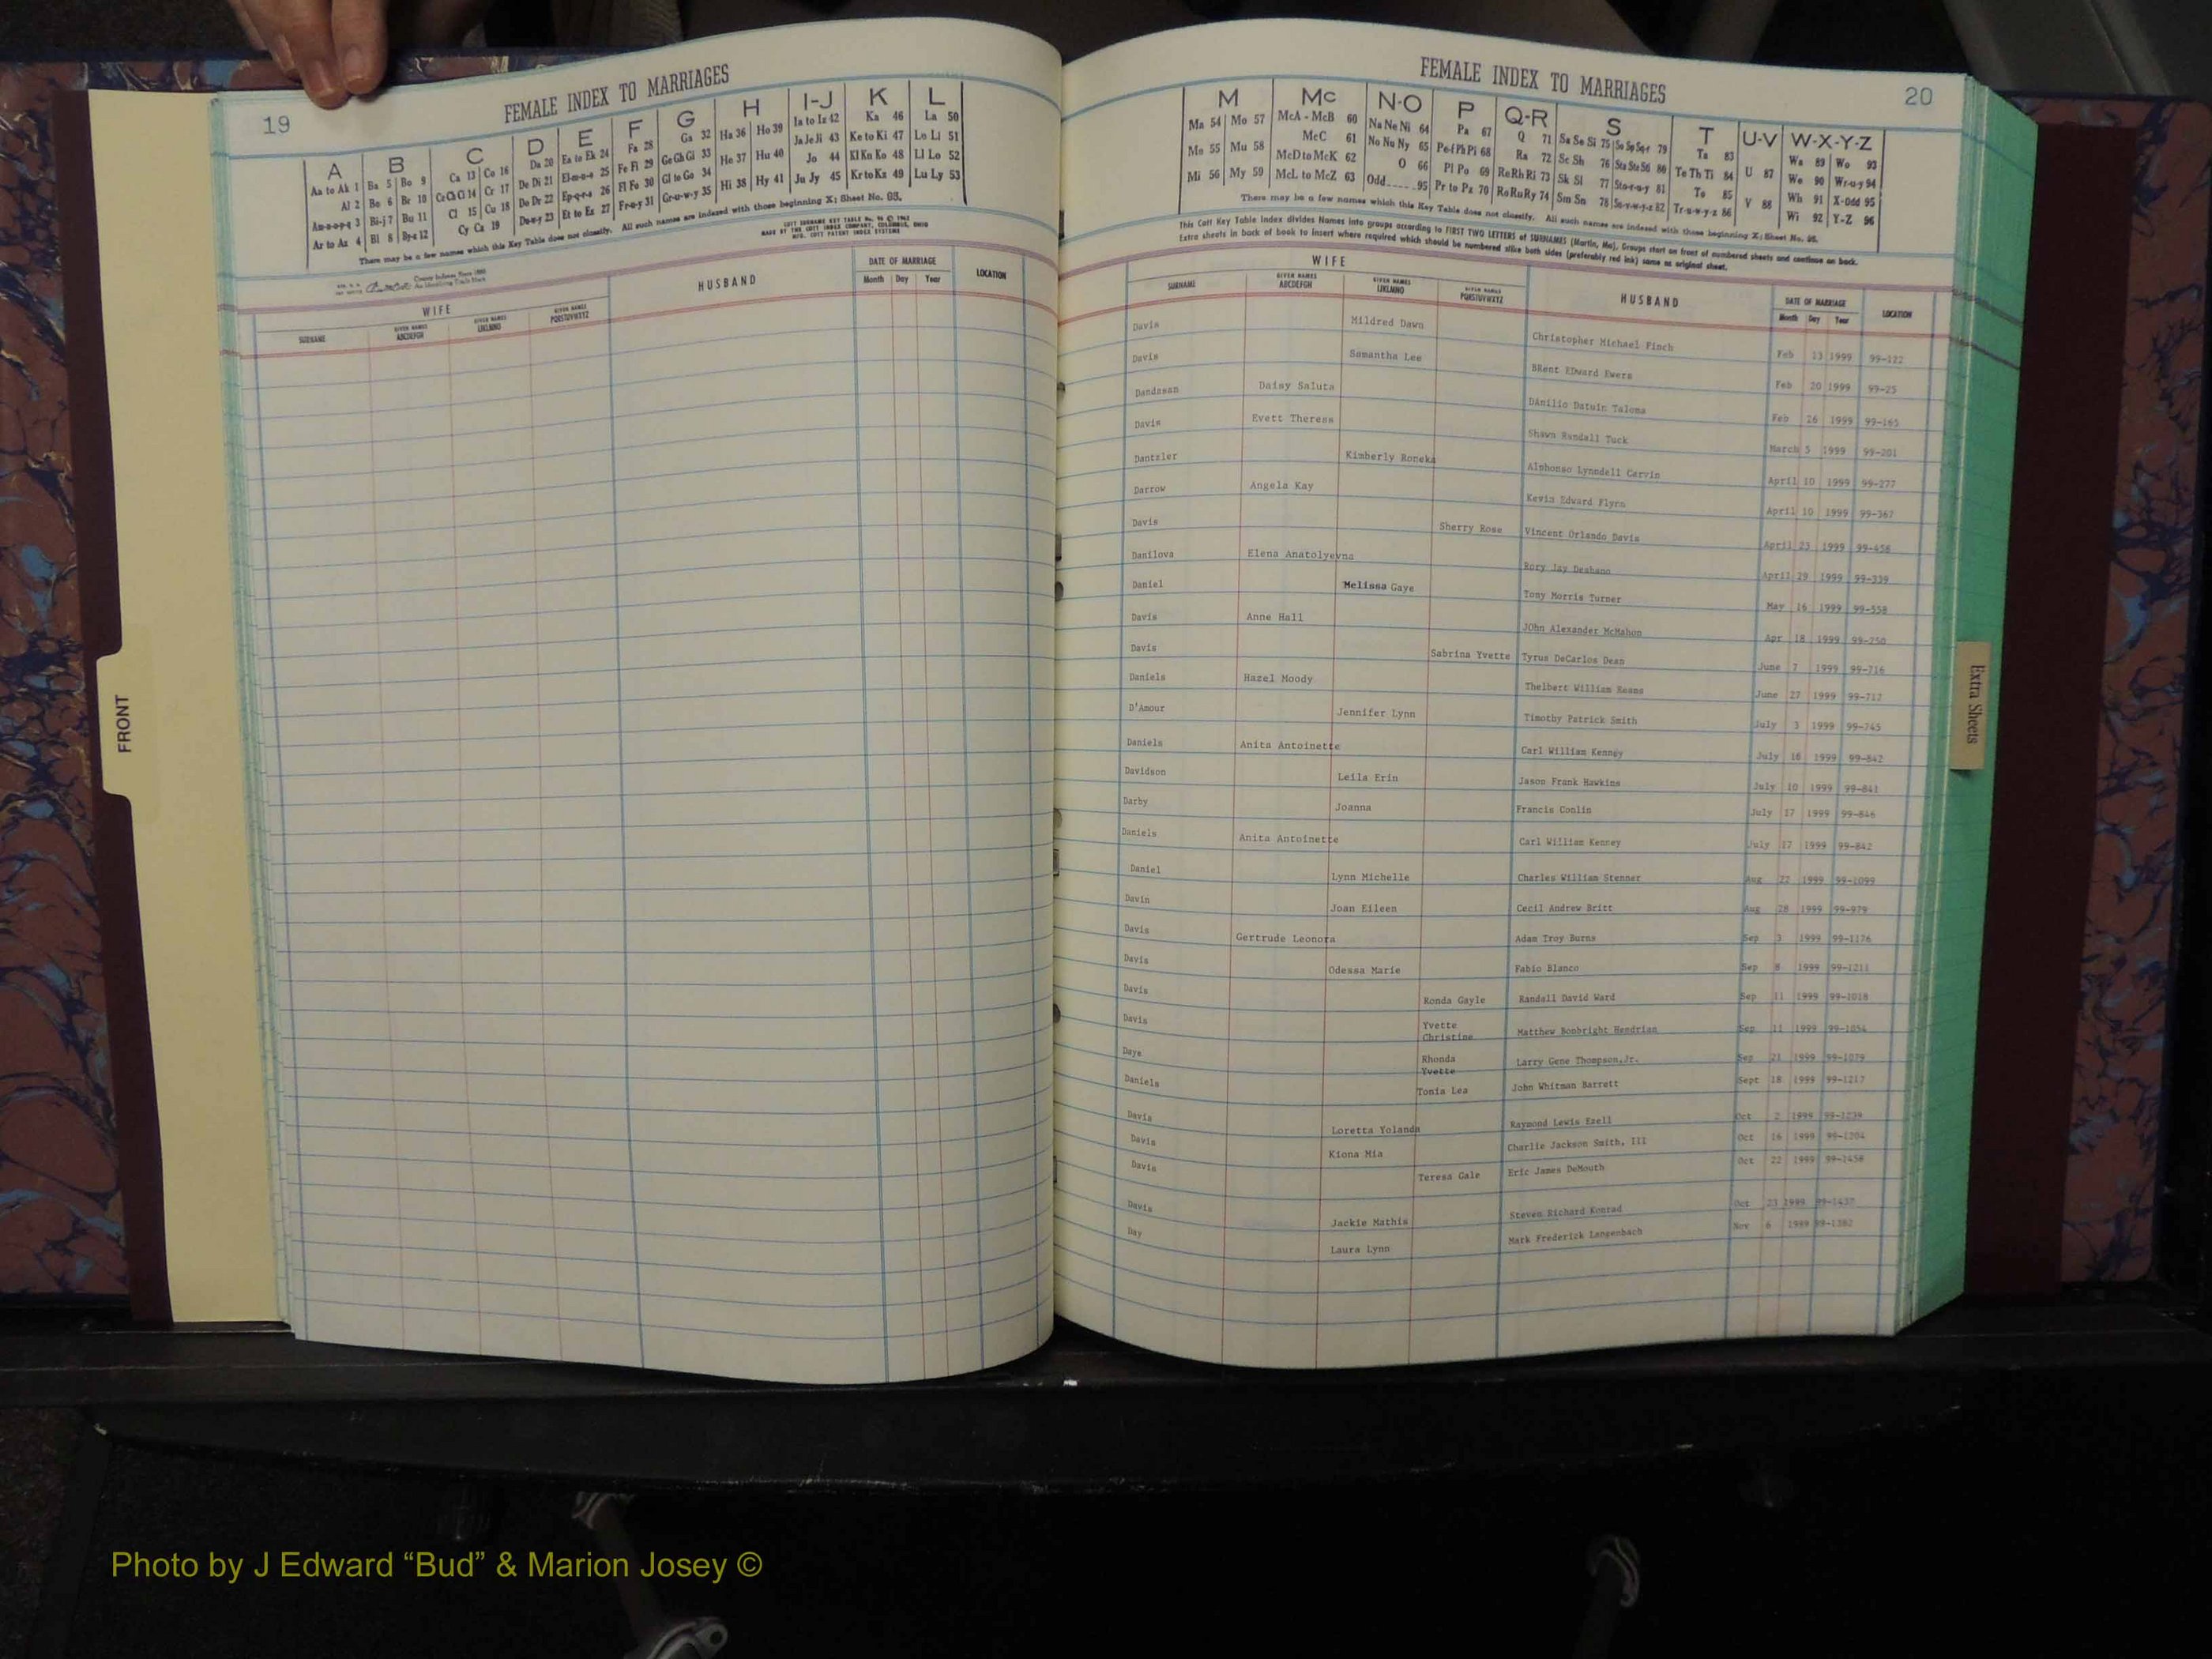 19
FEMALE INDEX TO MARRIAGES
A B C D E F G H I-J K L
Aa to Ak 1 Ba 5 Bo 9 Ca 13 Co 16 Da 20 Ea to Ek 24 Fa 28 Ga 32 Ha 36 Ho 39 Ia to Iz 42 Ka 46 La 50
Al 2 Be 6 Br 10 Ce Ch Ci 14 Cr 17 De Di 21 El-m-n-o 25 Fe Fi 29 Ge Gh Gi 33 He 37 Hu 40 Ja Je Ji 43 Ke to Ki 47 Le Li 51
Am-n-o-p-q 3 Bi-j 7 Bu 11 Cl 15 Cu 18 Do Dr 22 Ep-q-r-s 26 Fl Fo 30 Gl to Go 34 Hi 38 Hy 41 Jo 44 Kl Kn Ko 48 Ll Lo 52
Ar to Az 4 Bl 8 By-z 12 Cy Cz 19 Du-w-y 23 Et to Ez 27 Fr-u-y 31 Gr-u-w-y 35 Ju Jy 45 Kr to Kz 49 Lu Ly 53
There may be a few names which this Key Table does not classify. All such names are indexed with those beginning X; Sheet No. 95.
COTT SURNAME KEY TABLE No. 96 © 1962
MADE BY THE COTT INDEX COMPANY, COLUMBUS, OHIO
MFG. COTT PATENT INDEX SYSTEMS
County Indexes Since 1888
An Identifying Trade Mark
WIFE HUSBAND DATE OF MARRIAGE LOCATION
SURNAME GIVEN NAMES ABCDEFGH GIVEN NAMES IJKLMNO GIVEN NAMES PQRSTUVWXYZ Month Day Year
FRONT
FEMALE INDEX TO MARRIAGES
20
M Mc N-O P Q-R S T U-V W-X-Y-Z
Ma 54 Mo 57 McA - McB 60 Na Ne Ni 64 Pa 67 Q 71 Sa Se Si 75 So Sp Sq-r 79 Ta 83 U 87 Wa 89 Wo 93
Me 55 Mu 58 McC 61 No Nu Ny 65 Pe-f Ph Pi 68 Ra 72 Sc Sh 76 Sta Ste Sti 80 Te Th Ti 84 V 88 We 90 Wr-u-y 94
Mi 56 My 59 McD to McK 62 O 66 Pl Po 69 Re Rh Ri 73 Sk Sl 77 Sto-r-u-y 81 To 85 Wh 91 X-Odd 95
McL to McZ 63 Odd 95 Pr to Pz 70 Ro Ru Ry 74 Sm Sn 78 Su-v-w-y-z 82 Tr-u-w-y-z 86 Wi 92 Y-Z 96
There may be a few names which this Key Table does not classify. All such names are indexed with those beginning X; Sheet No. 95.
This Cott Key Table Index divides Names into groups according to FIRST TWO LETTERS of SURNAMES (Martin, Ma), Groups start on front of numbered sheets and continue on back.
Extra sheets in back of book to insert where required which should be numbered alike both sides (preferably red ink) same as original sheet.
WIFE HUSBAND DATE OF MARRIAGE LOCATION
SURNAME GIVEN NAMES ABCDEFGH GIVEN NAMES IJKLMNO GIVEN NAMES PQRSTUVWXYZ Month Day Year
Davis Mildred Dawn Christopher Michael Finch Feb 13 1999 99-122
Davis Samantha Lee BRent EDward Ewers Feb 20 1999 99-25
Dandasan Daisy Saluta DAnilio Datuin Talona Feb 26 1999 99-165
Davis Evett Theresa Shawn Randall Tuck March 5 1999 99-201
Dantzler Kimberly Roneka Alphonso Lynndell Garvin April 10 1999 99-277
Darrow Angela Kay Kevin Edward Flynn April 10 1999 99-367
Davis Sherry Rose Vincent Orlando Davis April 23 1999 99-458
Danilova Elena Anatolyevna Rory Jay Deshano April 29 1999 99-339
Daniel Melissa Gaye Tony Morris Turner May 16 1999 99-558
Davis Anne Hall JOhn Alexander McMahon Apr 18 1999 99-250
Davis Sabrina Yvette Tyrus DeCarlos Dean June 7 1999 99-716
Daniels Hazel Moody Thelbert William Reams June 27 1999 99-712
D'Amour Jennifer Lynn Timothy Patrick Smith July 3 1999 99-745
Daniels Anita Antoinette Carl William Kenney July 16 1999 99-842
Davidson Leila Erin Jason Frank Hawkins July 10 1999 99-841
Darby Joanna Francis Conlin July 17 1999 99-846
Daniels Anita Antoinette Carl William Kenney July 17 1999 99-842
Daniel Lynn Michelle Charles William Stenner Aug 22 1999 99-1099
Davin Joan Eileen Cecil Andrew Britt Aug 28 1999 99-979
Davis Gertrude Leonora Adam Troy Burns Sep 3 1999 99-1176
Davis Odessa Marie Fabio Blanco Sep 8 1999 99-1211
Davis Ronda Gayle Randall David Ward Sep 11 1999 99-1018
Davis Yvette Christine Matthew Bonbright Hendrian Sep 11 1999 99-1054
Days Rhonda Yvette Larry Gene Thompson,Jr. Sep 21 1999 99-1079
Daniels Tonia Lea John Whitman Barrett Sept 18 1999 99-1217
Davis Loretta Yolanda Raymond Lewis Ezell Oct 2 1999 99-1239
Davis Kiona Mia Charlie Jackson Smith, III Oct 16 1999 99-1204
Davis Teresa Gale Eric James DeMouth Oct 22 1999 99-1458
Davis Jackie Mathis Steven Richard Konrad Oct 23 1999 99-1437
Day Laura Lynn Mark Frederick Langenbach Nov 6 1999 99-1382
Extra Sheets
Photo by J Edward “Bud” & Marion Josey ©